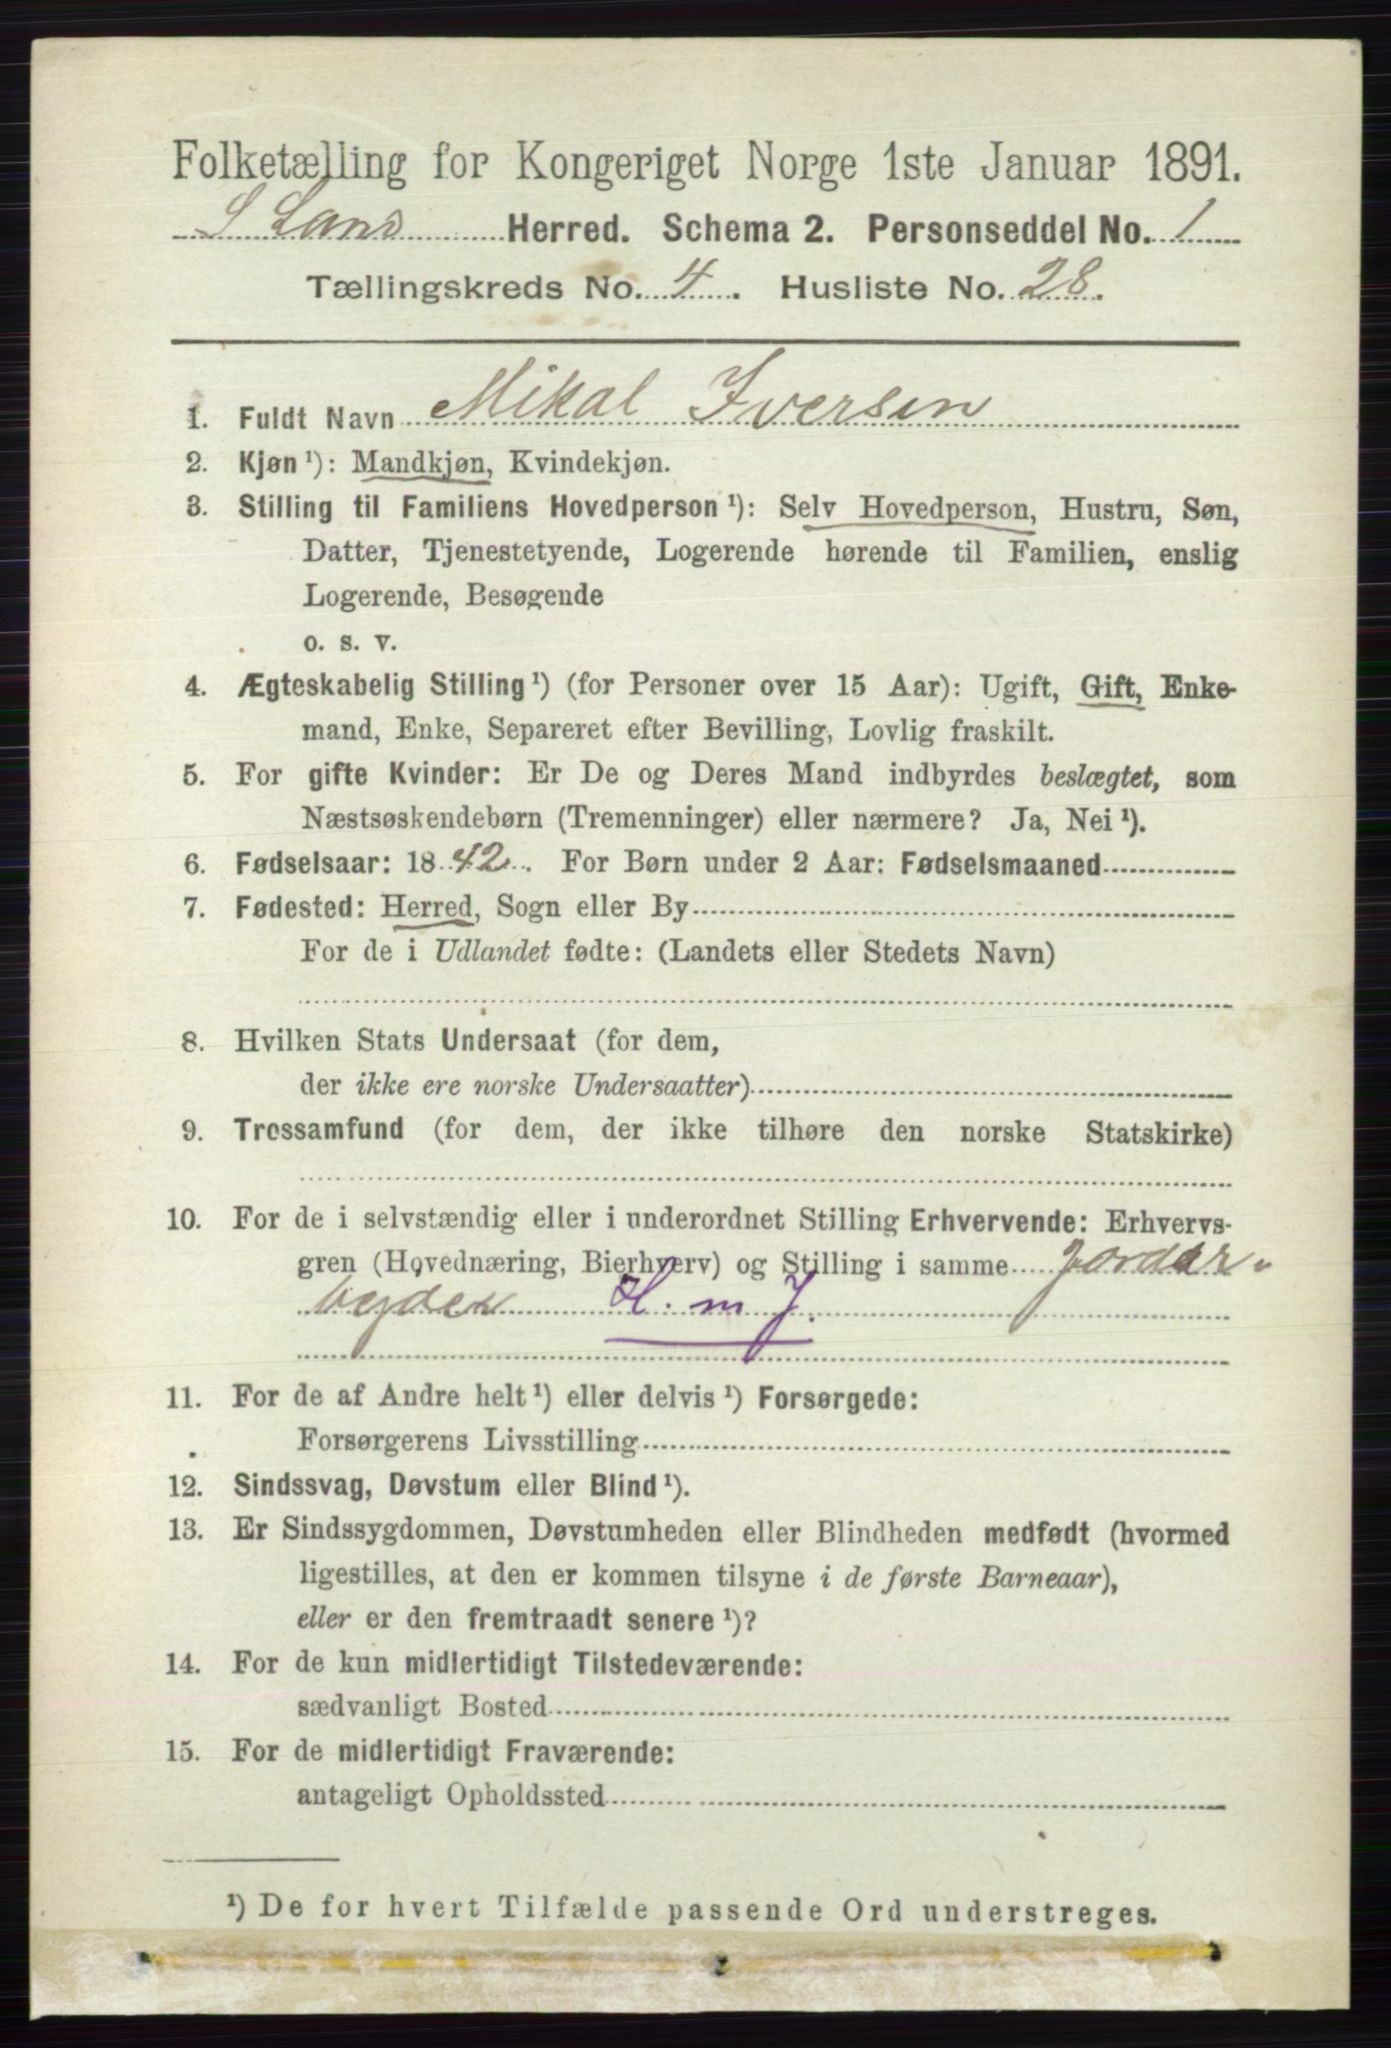 Folketælling for Kongeriget Norge 1ste Januar 1891.
S Land Herred. Schema 2. Personseddel No. 1
Tællingskreds No. 4. Husliste No. 28.
1. Fuldt Navn Mikal Iversen
2. Kjøn ¹): Mandkjøn, Kvindekjøn.
3. Stilling til Familiens Hovedperson ¹): Selv Hovedperson, Hustru, Søn,
Datter, Tjenestetyende, Logerende hørende til Familien, enslig
Logerende, Besøgende
o. s. v.
4. Ægteskabelig Stilling ¹) (for Personer over 15 Aar): Ugift, Gift, Enke-
mand, Enke, Separeret efter Bevilling, Lovlig fraskilt.
5. For gifte Kvinder: Er De og Deres Mand indbyrdes beslægtet, som
Næstsøskendebørn (Tremenninger) eller nærmere? Ja, Nei ¹).
6. Fødselsaar: 1842. For Børn under 2 Aar: Fødselsmaaned
7. Fødested: Herred, Sogn eller By
For de i Udlandet fødte: (Landets eller Stedets Navn)
8. Hvilken Stats Undersaat (for dem,
der ikke ere norske Undersaatter)
9. Trossamfund (for dem, der ikke tilhøre den norske Statskirke)
10. For de i selvstændig eller i underordnet Stilling Erhvervende: Erhvervs-
gren (Hovednæring, Bierhverv) og Stilling i samme Jordar-
beyder H. m J.
11. For de af Andre helt ¹) eller delvis ¹) Forsørgede:
Forsørgerens Livsstilling
12. Sindssvag, Døvstum eller Blind ¹).
13. Er Sindssygdommen, Døvstumheden eller Blindheden medfødt (hvormed
ligestilles, at den er kommen tilsyne i de første Barneaar),
eller er den fremtraadt senere ¹)?
14. For de kun midlertidigt Tilstedeværende:
sædvanligt Bosted
15. For de midlertidigt Fraværende:
antageligt Opholdssted
¹) De for hvert Tilfælde passende Ord understreges.